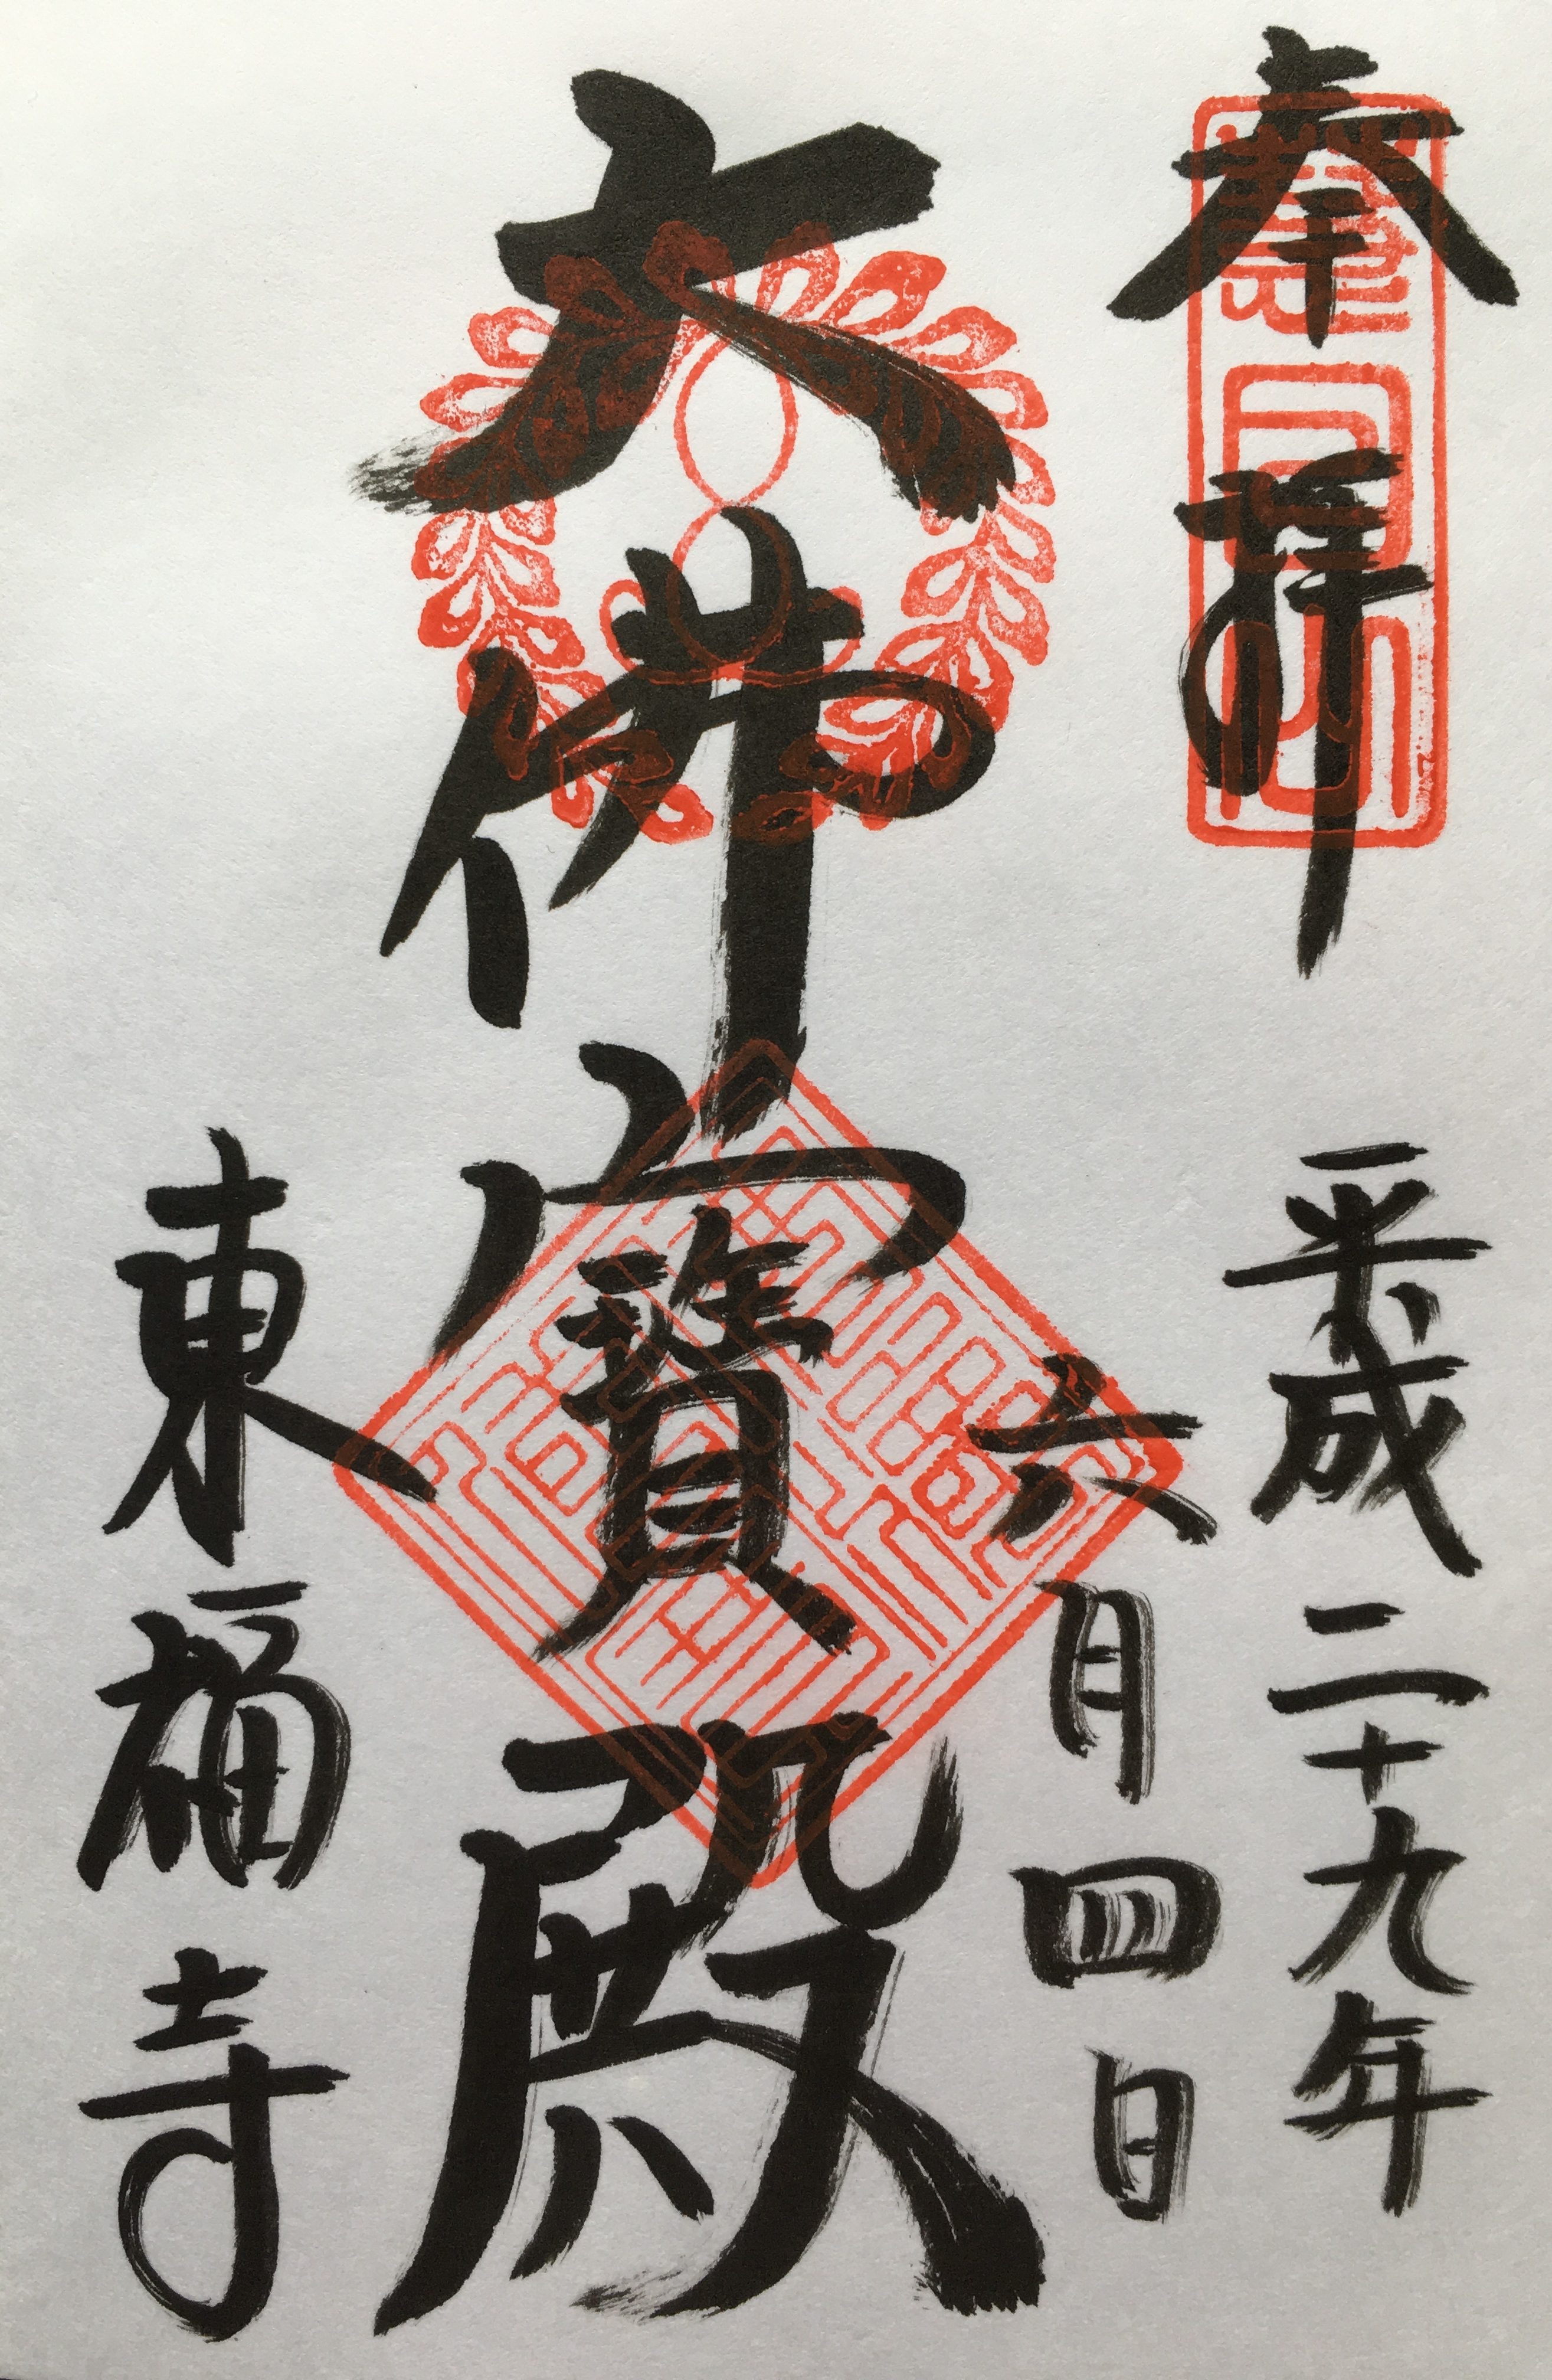 奉拝
平成二十九年
六月四日
大佛寳殿
東福寺